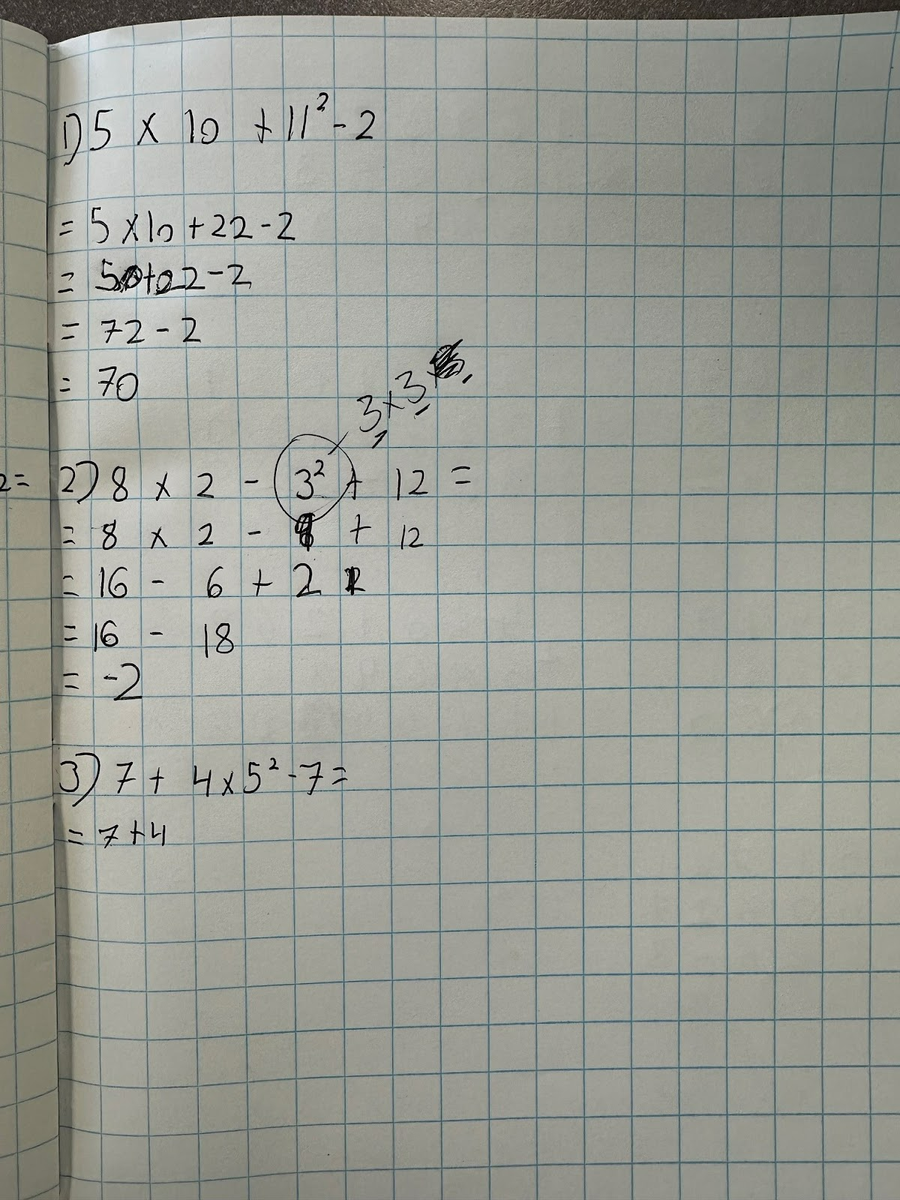 1) 5 × 10 + 11² - 2
= 5 × 10 + 22 - 2
= 50 + 22 - 2
= 72 - 2
= 70
3 × 3
2=
2) 8 × 2 - 3² + 12 =
= 8 × 2 - 9 + 12
= 16 - 6 + 2 1
= 16 - 18
= -2
3) 7 + 4 × 5² - 7 =
= 7 + 4